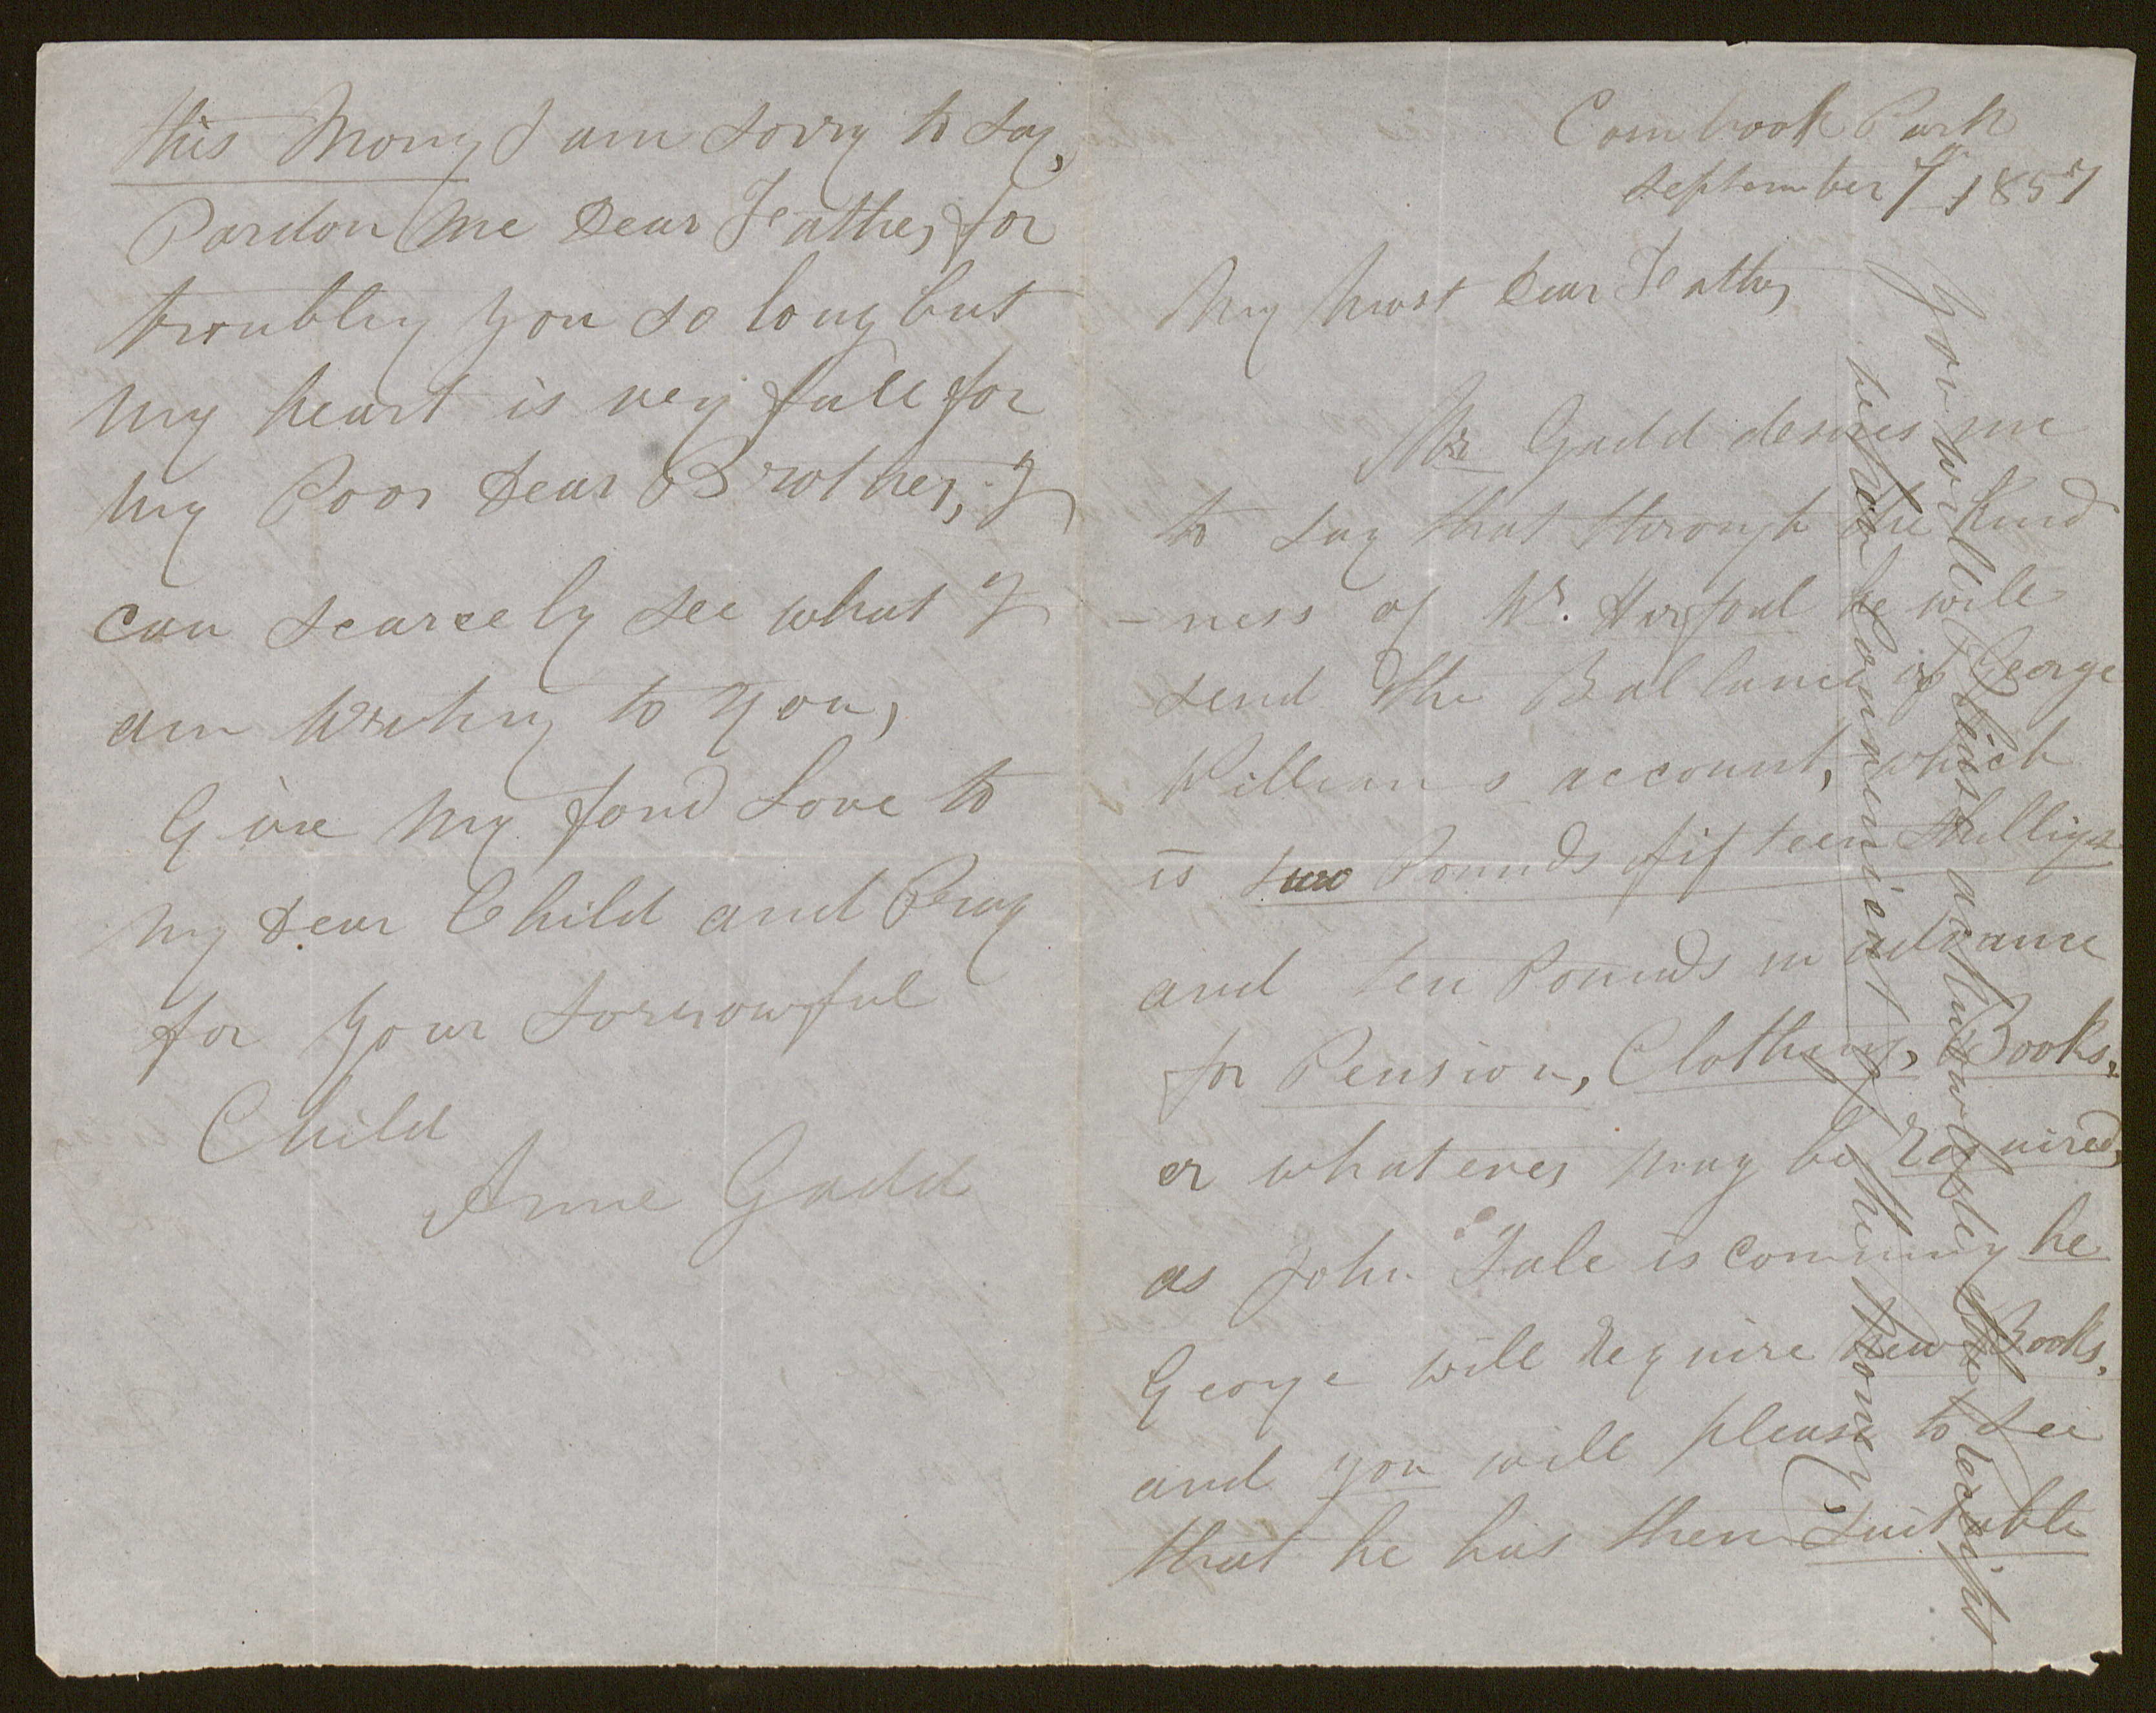 Cornbrook Park
September 7th 1857
My Most Dear Father
Mr Gadd desires me
to say that through the kind
-ness of Mr. Harford he will
send the Ballance of George
Williams account, which
is two Pounds fifteen Shillings
and ten Pounds in advance
for Pension, Clothing, Books,
or whatever may be required,
as John Tale is comming he
George will require New Books,
and you will please to see
that he has them suitable
You will his acknowledge the receipt
before Communicat the Mony,
this Mony I am sorry to say,
Pardon me Dear Father for
troubling you so long but
my heart is very full for
my Poor Dear Brother, I
can scarcely see what I
am Writing to You,
Give my fond Love to
my Dear Child and Pray
for Your Sorrowful
Child
Anne Gadd